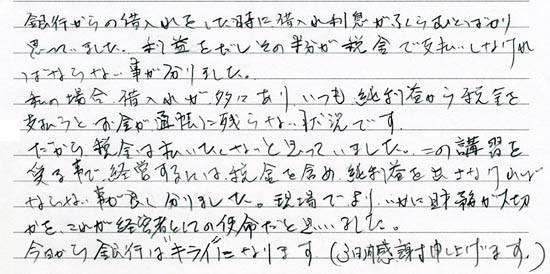 銀行からの借入れをした時に借入れ利息がふくらむとばかり
思っていました。利益をだしその半分が税金で支払いしなけれ
ばならない事が分りました。
私の場合、借入れが多にあり、いつも純利益から税金を
支払うとお金が通帳に残らない状況です。
だから、税金は払いたくないと思っていました。この講習を
受る事で、経営するには、税金を含め、純利益を出さなければ
ならない事が良く分りました。現場でより、いかに財務が大切
かを、これが経営者としての使命だと思いました。
今日から銀行は"キライ"になります(3日間感謝申し上げます。)